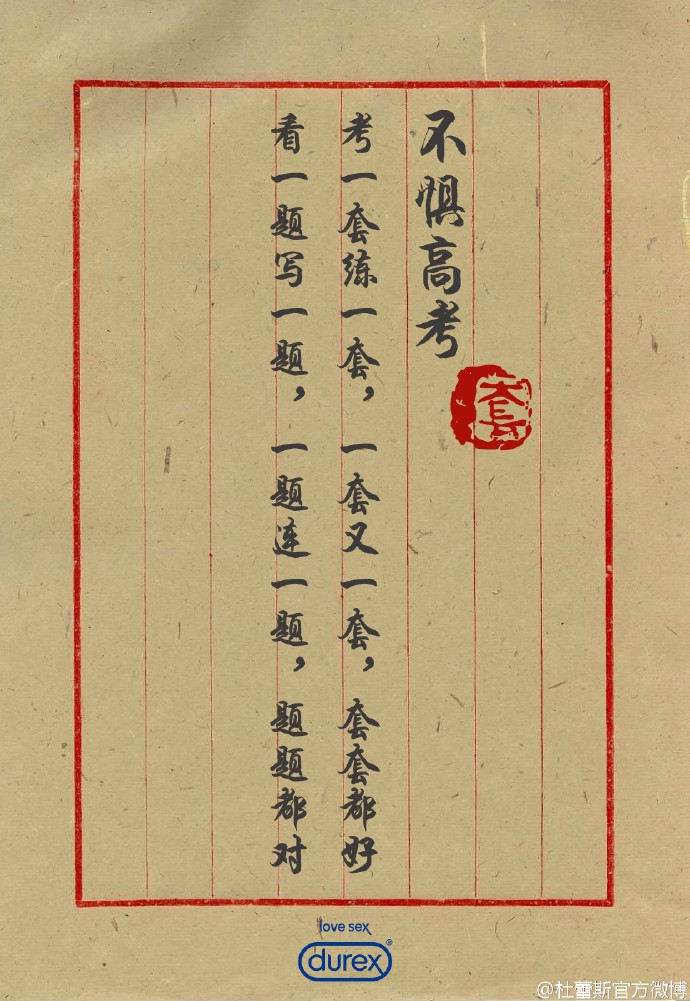 不惧高考
套
考一套练一套，一套又一套，套套都好
看一题写一题，一题连一题，题题都对
love sex
durex®
@杜蕾斯官方微博